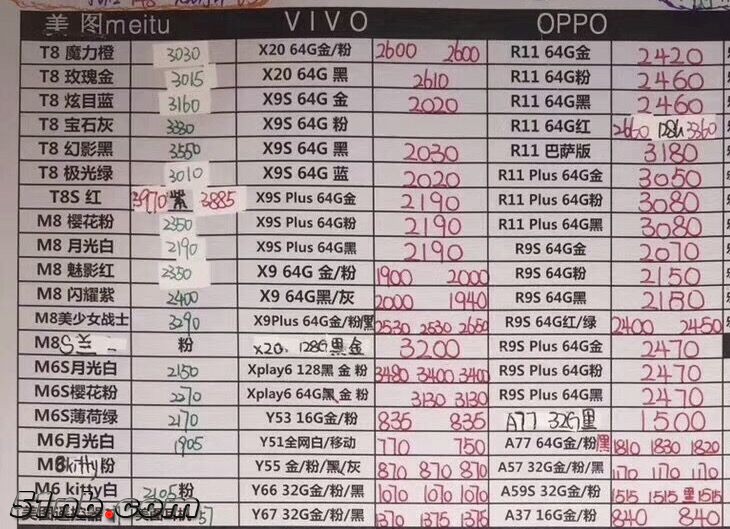 美图meitu VIVO OPPO
T8 魔力橙 3030 X20 64G金/粉 2600 2600 R11 64G金 2420
T8 玫瑰金 3015 X20 64G 黑 2610 R11 64G粉 2460
T8 炫目蓝 3160 X9S 64G 金 2020 R11 64G黑 2460
T8 宝石灰 3330 X9S 64G 粉 R11 64G红 2660 128G 3360
T8 幻影黑 3550 X9S 64G 黑 2030 R11 巴萨版 3180
T8 极光绿 3010 X9S 64G 蓝 2020 R11 Plus 64G金 3050
T8S 红 3970 紫 3885 X9S Plus 64G金 2190 R11 Plus 64G粉 3080
M8 樱花粉 2350 X9S Plus 64G粉 2190 R11 Plus 64G黑 3080
M8 月光白 2190 X9S Plus 64G黑 2190 R9S 64G金 2070
M8 魅影红 2350 X9 64G 金/粉 1900 2000 R9S 64G粉 2150
M8 闪耀紫 2400 X9 64G黑/灰 2000 1940 R9S 64G黑 2180
M8美少女战士 3290 X9Plus 64G金/粉/黑 2530 2530 2650 R9S 64G红/绿 2400 2450
M8S 粉 X20 128G黑金 3200 R9S Plus 64G金 2470
M6S月光白 2150 Xplay6 128黑 金 粉 3480 3400 3400 R9S Plus 64G粉 2470
M6S樱花粉 2270 Xplay6 64G黑 金 粉 3130 3130 R9S Plus 64G黑 2470
M6S薄荷绿 2170 Y53 16G金/粉 835 835 A77 32G黑 1500
M6月光白 1905 Y51全网白/移动 770 750 A77 64G金/粉黑 1810 1830 1820
kitty粉 Y55 金/粉/黑/灰 870 870 870 A57 32G金/粉/黑 1170 1170 1170
M6 kitty白 2105粉 Y66 32G金/粉/黑 1070 1070 1070 A59S 32G金/粉 1515 1515 黑1515
Y67 32G金/粉/黑 1370 1375 1375 A37 16G金/粉 840 840
51nb.com